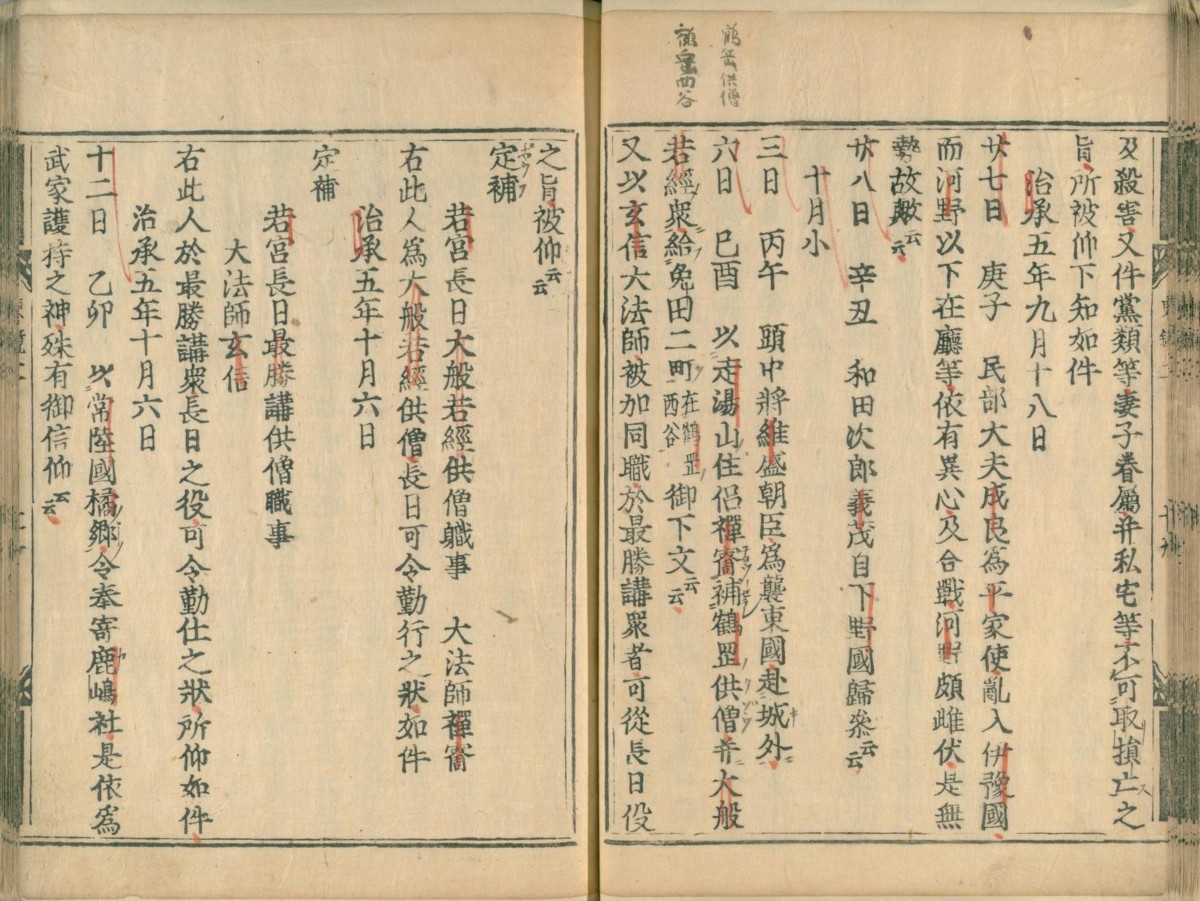 鶴岳供僧
鶴岳西谷
及殺害又件黨類等妻子眷屬并私宅等不可取損亡之
旨所被仰下知如件
治承五年九月十八日
廿七日　庚子　民部大夫成良為平家使亂入伊豫國
而河野以下在廳等依有異心及合戰河野頗雌伏是無
勢故歟云云
廿八日　辛丑　和田次郎義茂自下野國歸參云云
十月小
三日　丙午　頭中將維盛朝臣為襲東國赴城外
六日　已酉　以走湯山住侶禪睿補鶴罡供僧并大般
若經衆給免田二町在鶴罡西谷御下文云云
又以玄信大法師被加同職於最勝講衆者可從長日役
之旨被仰云云
定補
若宮長日大般若經供僧職事　大法師禪睿
右此人為大般若經供僧長日可令勤行之狀如件
治承五年十月六日
定補
若宮長日最勝講供僧職事
大法師玄信
右此人於最勝講衆長日之役可令勤仕之狀所仰如件
治承五年十月六日
十二日　乙卯　以常陸國橘郷令奉寄鹿嶋社是依為
武家護持之神殊有御信仰云云